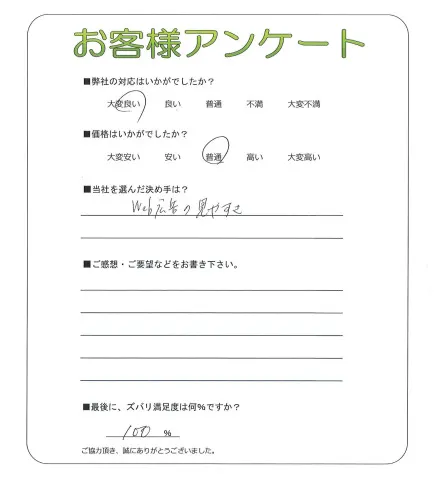 お客様アンケート
■弊社の対応はいかがでしたか？
大変良い 良い 普通 不満 大変不満
■価格はいかがでしたか？
大変安い 安い 普通 高い 大変高い
■当社を選んだ決め手は？
Web広告の見やすさ
■ご感想・ご要望などをお書き下さい。
■最後に、ズバリ満足度は何％ですか？
100 ％
ご協力頂き、誠にありがとうございました。